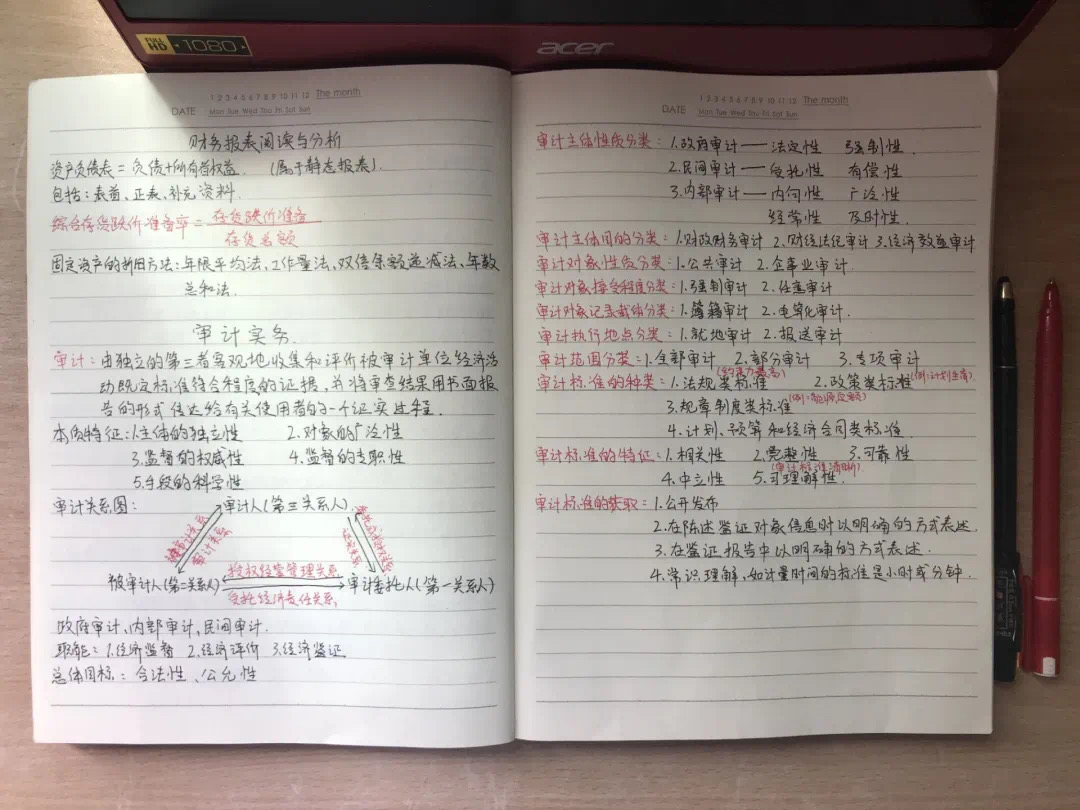 FULL HD 1080
acer
1 2 3 4 5 6 7 8 9 10 11 12 The month
DATE Mon Tue Wed Thu Fri Sat Sun
财务报表阅读与分析
资产负债表=负债+所有者权益. (属于静态报表).
包括:表首、正表、补充资料.
综合存货跌价准备率=存货跌价准备
存货总额
固定资产的折旧方法:年限平均法、工作量法、双倍余额递减法、年数
总和法.
审计实务.
审计:由独立的第三者客观地收集和评价被审计单位经济活
动既定标准符合程度的证据,并将审查结果用书面报
告的形式传达给有关使用者的一个证实过程.
本质特征:1.主体的独立性 2.对象的广泛性
3.监督的权威性 4.监督的专职性
5.手段的科学性
审计关系图: 审计人(第三关系人)
审计关系
授权经营管理关系
被审计人(第二关系人) 审计委托人(第一关系人)
受托经济责任关系
政府审计、内部审计、民间审计.
职能:1.经济监督 2.经济评价 3.经济鉴证
总体目标:合法性、公允性
1 2 3 4 5 6 7 8 9 10 11 12 The month
DATE Mon Tue Wed Thu Fri Sat Sun
审计主体性质分类:1.政府审计——法定性 强制性.
2.民间审计——受托性 有偿性
3.内部审计——内向性 广泛性
经常性 及时性.
审计主体目的分类:1.财政财务审计 2.财经法纪审计 3.经济效益审计
审计对象性质分类:1.公共审计 2.企事业审计.
审计对象接受程度分类:1.强制审计 2.任意审计
审计对象记录载体分类:1.簿籍审计 2.电算化审计.
审计执行地点分类:1.就地审计 2.报送审计
审计范围分类:1.全部审计 2.部分审计 3.专项审计
(约束力最高)
审计标准的种类:1.法规类标准 2.政策类标准
3.规章制度类标准
4.计划、预算和经济合同类标准.
审计标准的特征:1.相关性 2.完整性 3.可靠性
(审计标准清晰)
4.中立性 5.可理解性.
审计标准的获取:1.公开发布
2.在陈述鉴证对象信息时以明确的方式表述.
3.在鉴证报告中以明确的方式表述.
4.常识理解,如计量时间的标准是小时或分钟.